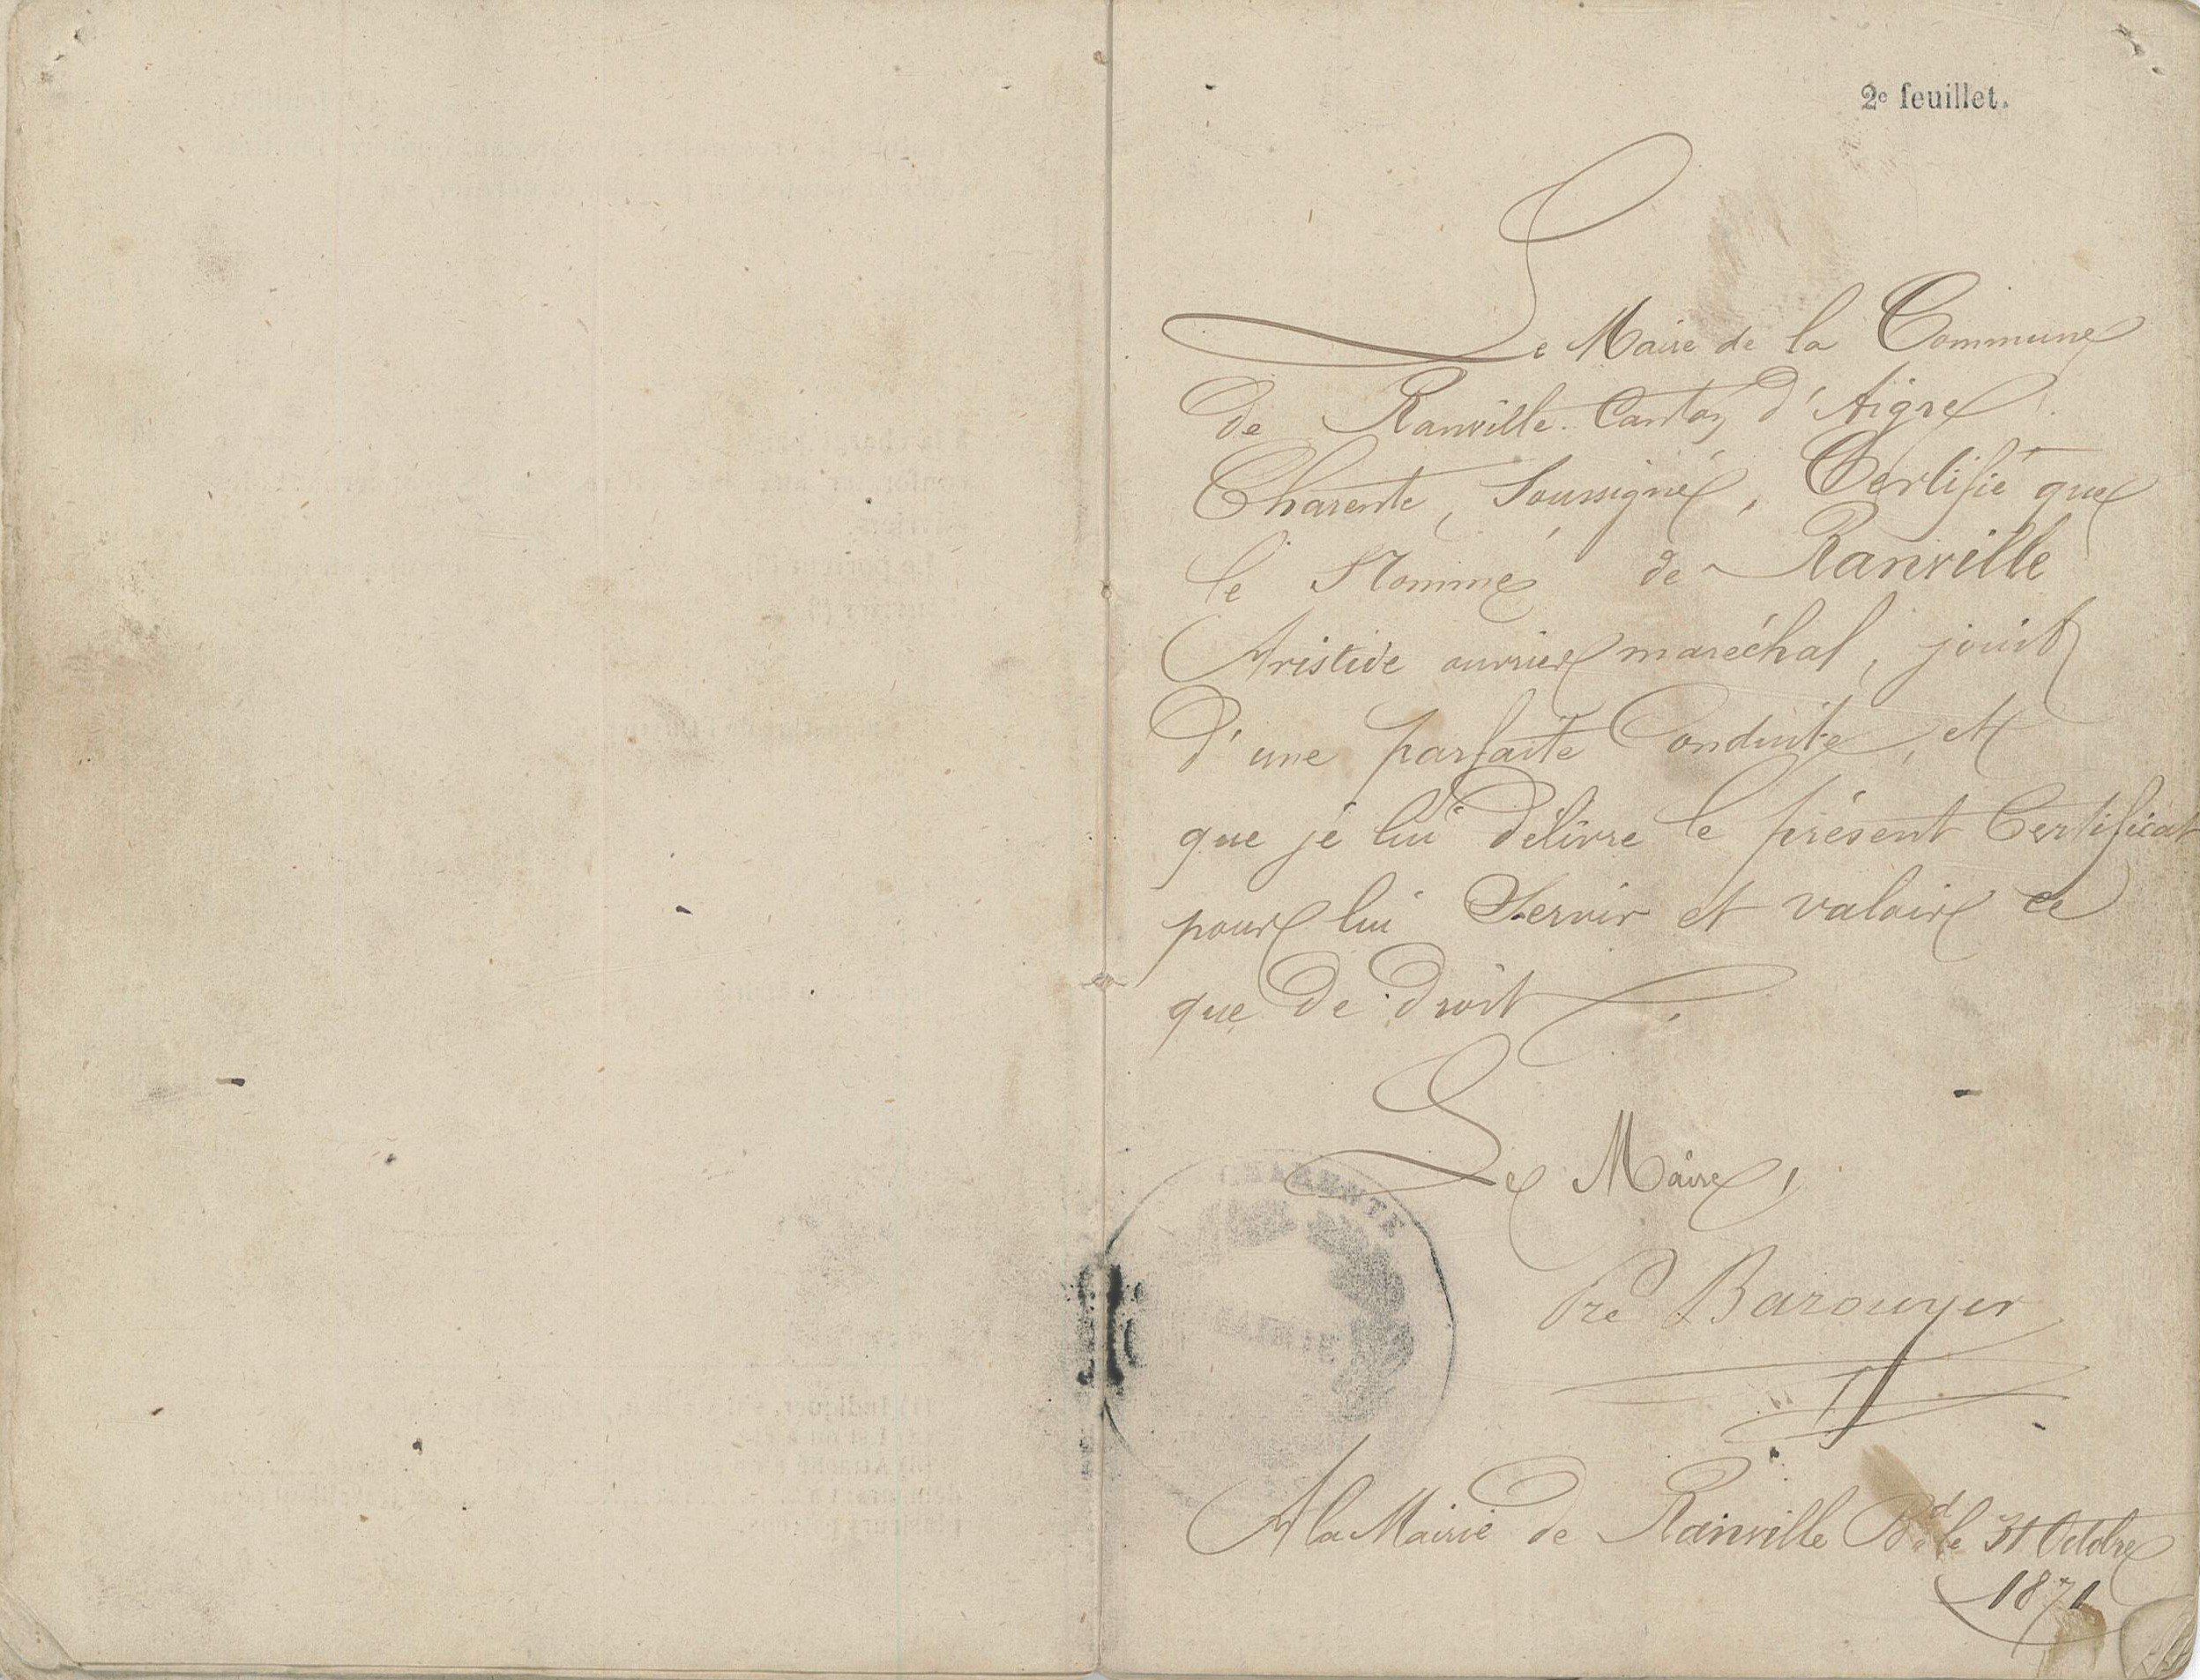 2e feuillet.
Le Maire de la Commune
de Ranville. Canton d'Aigre
Charente, Soussigné, Certifié que
le Nommé de Ranville
Aristide ouvrier maréchal, jouit
d'une parfaite Conduite, et
que je lui délivre le présent Certificat
pour lui Servir et valoir ce
que de droit.
Le Maire,
Pre Barouyer
CHARENTE
MAIRIE
A la Mairie de Ranville Bd le 31 Octobre
1871